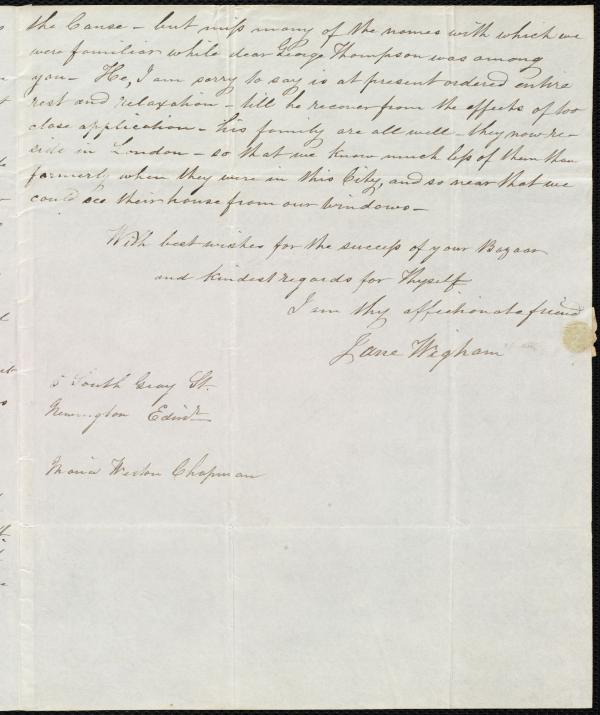 the Cause – but miss many of the names with which we
were familiar while dear George Thompson was among
you – He, I am sorry to say is at present ordered entire
rest and relaxation – till he recover from the effects of too
close application – his family are all well – they now re-
side in London – so that we know much less of them than
formerly when they were in this City, and so near that we
could see their house from our windows –
With best wishes for the success of your Bazaar
and kindest regards for Thyself
I am thy affectionate friend
Jane Wigham
5 South Gray St.
Newington Edinr
Maria Weston Chapman